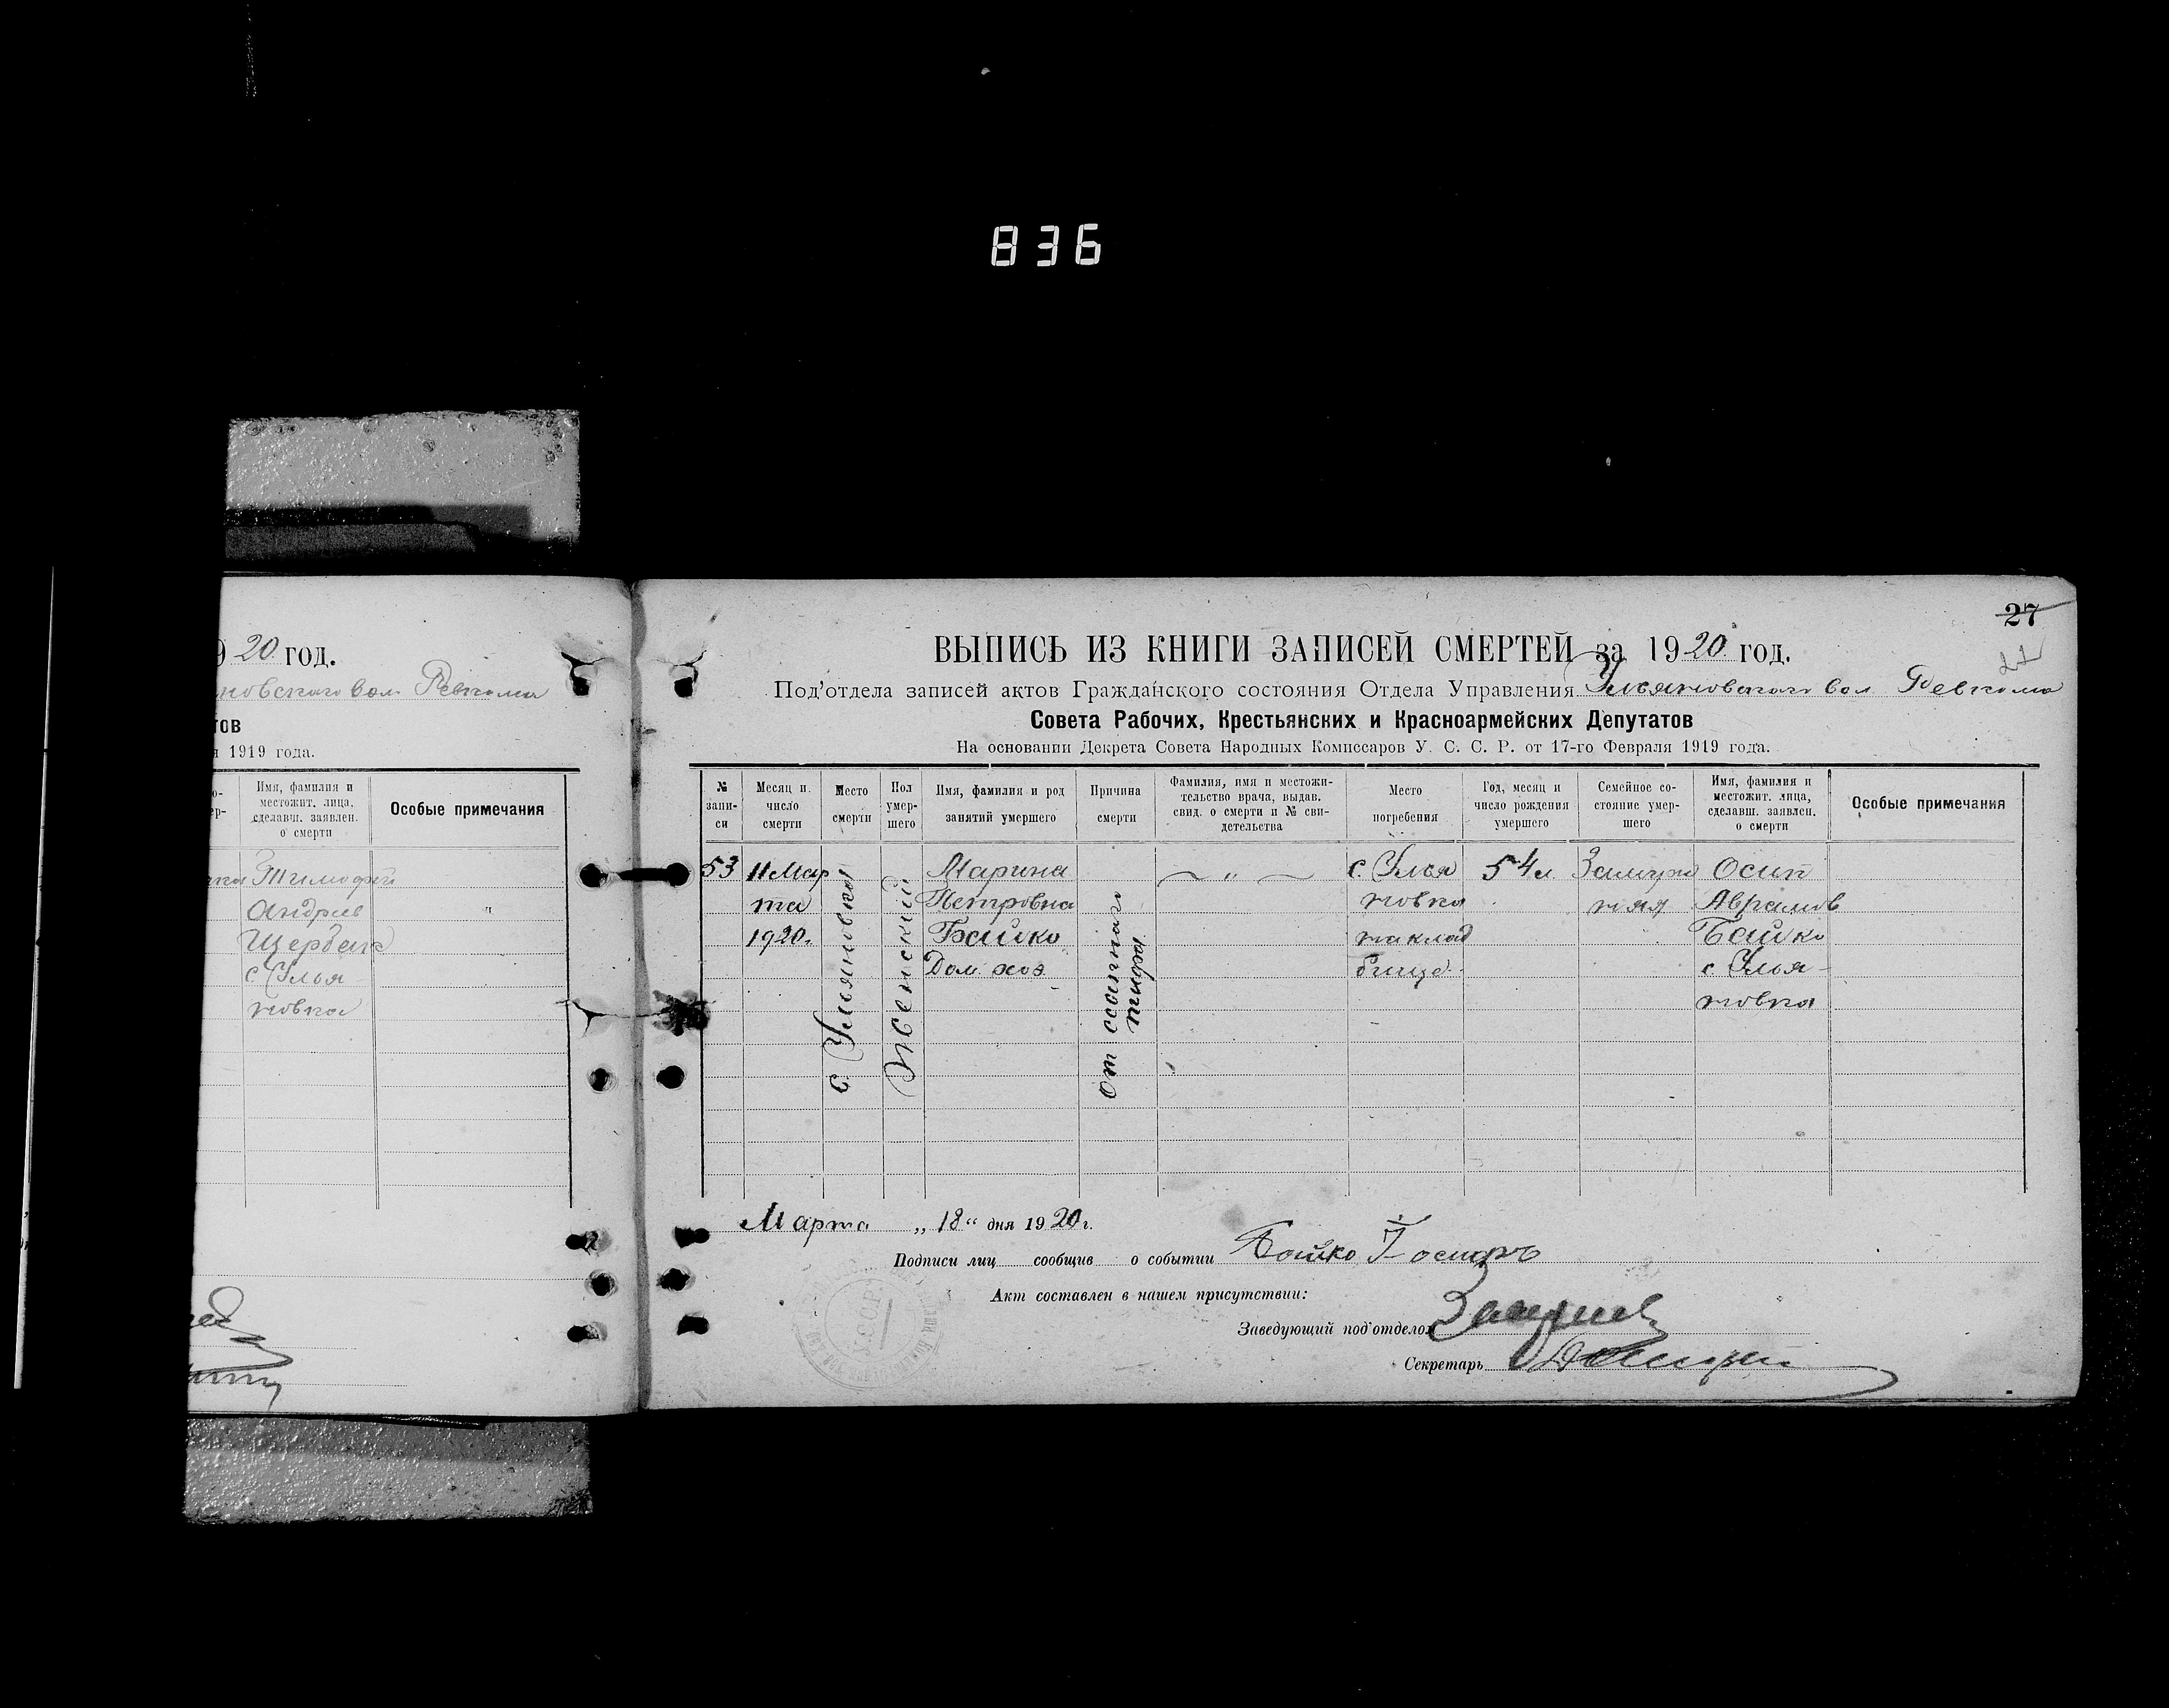 836
20 год.
новскаго вол. Ревкома
тов
я 1919 года.
Имя, фамилия и
местожит. лица,
сделавш. заявлен.
о смерти
Особые примечания
Тимофей
Андриев
Щербак
с. Улья
новка
27
ВЫПИСЬ ИЗ КНИГИ ЗАПИСЕЙ СМЕРТЕЙ за 1920 год.
Под'отдела записей актов Гражданского состояния Отдела Управления Ульяновскаго вол Ревкома
Совета Рабочих, Крестьянских и Красноармейских Депутатов
На основании Декрета Совета Народных Комиссаров У. С. С. Р. от 17-го Февраля 1919 года.
№
запи-
си
Месяц и
число
смерти
Место
смерти
Пол
умер-
шего
Имя, фамилия и род
занятий умершего
Причина
смерти
Фамилия, имя и местожи-
тельство врача, выдав.
свид. о смерти и № сви-
детельства
Место
погребения
Год, месяц и
число рождения
умершего
Семейное со-
стояние умер-
шего
Имя, фамилия и
местожит. лица,
сделавш. заявлен.
о смерти
Особые примечания
53
11 Мар
та
1920.
с. Ульяновка
Женский
Марина
Петровна
Бойко
Дом. хоз.
от сыпного
тифа
— „ —
с. Улья
новка
на клад
бище.
54 л
Замуж
няя
Осип
Аврамов
Бойко
с. Улья-
новка
Марта „18“ дня 1920 г.
Подписи лиц сообщив о событии Бойко Иосипъ
Акт составлен в нашем присутствии:
Заведующий под'отделом
Секретарь